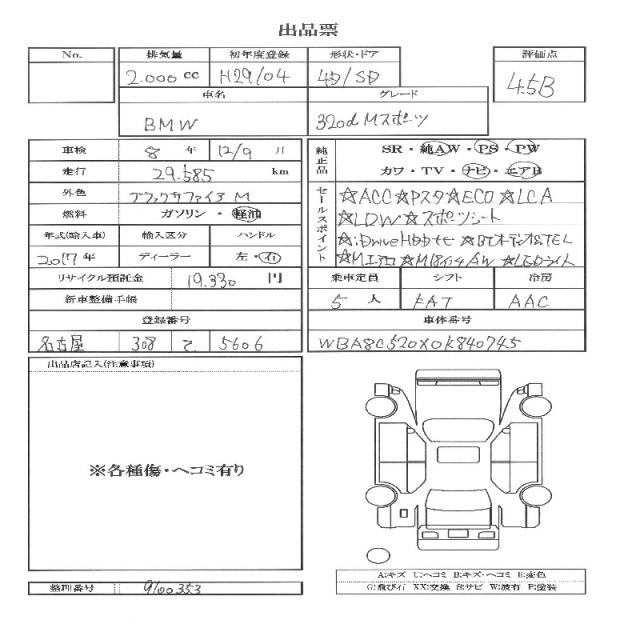 出品票
No. 排気量 初年度登録 形状・ドア 評価点
2.000 cc H29/04 4D/SD 4.5B
車名 グレード
BMW 320d Mスポーツ
車検 8 年 12/9 月
走行 29.585 km
外色 ブラックサファイア M
燃料 ガソリン・軽油
年式(輸入車) 輸入区分 ハンドル
2017 年 ディーラー 左・右
リサイクル預託金 19.330 円
新車整備手帳
登録番号
名古屋 308 て 5606
純正品
SR・純AW・PS・PW
カワ・TV・ナビ・エアB
セールスポイント
☆ACC☆Pスタ☆ECO☆LCA
☆LDW☆スポーツシート
☆iDriveHDDナビ ☆BTオーディオ&TEL
☆Mエアロ☆M18インチAW ☆LEDライト
乗車定員 シフト 冷房
5 人 FAT AAC
車体番号
WBA8C520X0K840745
出品店記入(注意事項)
※各種傷・ヘコミ有り
A:キズ U:ヘコミ B:キズ・ヘコミ E:変色
G:飛び石 XX:交換 S:サビ W:波有 P:塗装
整理番号 9100353